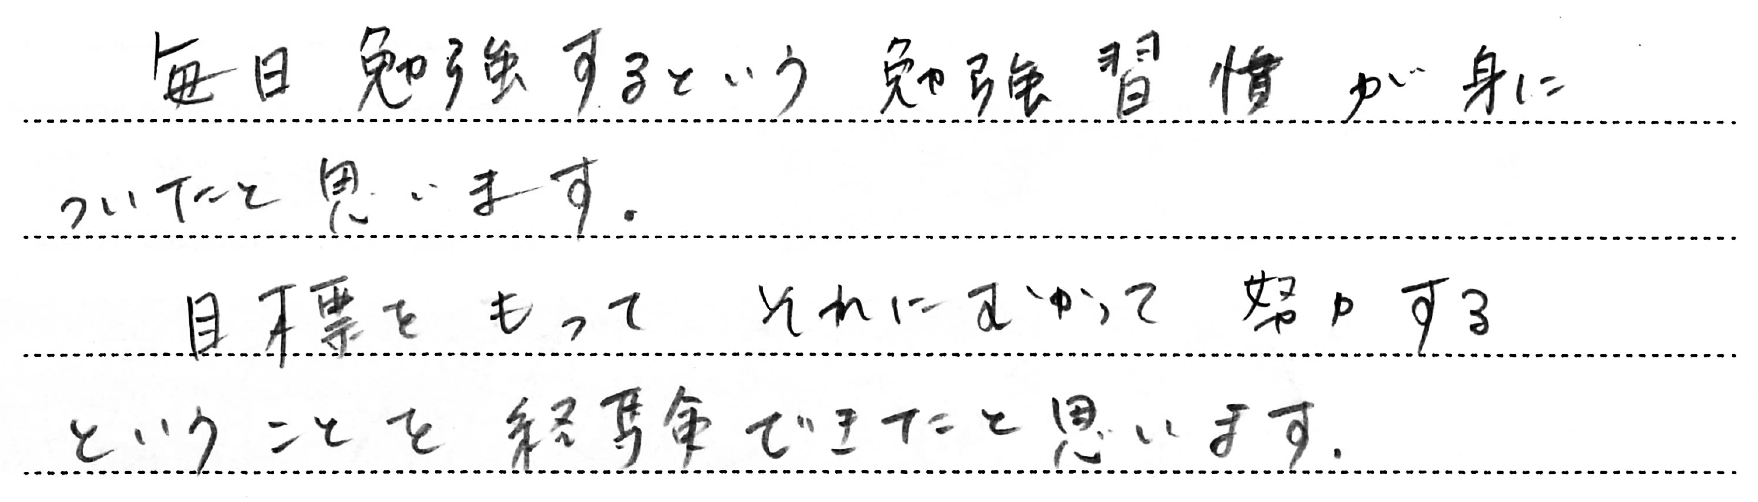 毎日勉強するという勉強習慣が身に
ついたと思います.
目標をもってそれにむかって努力する
ということを経験できたと思います.